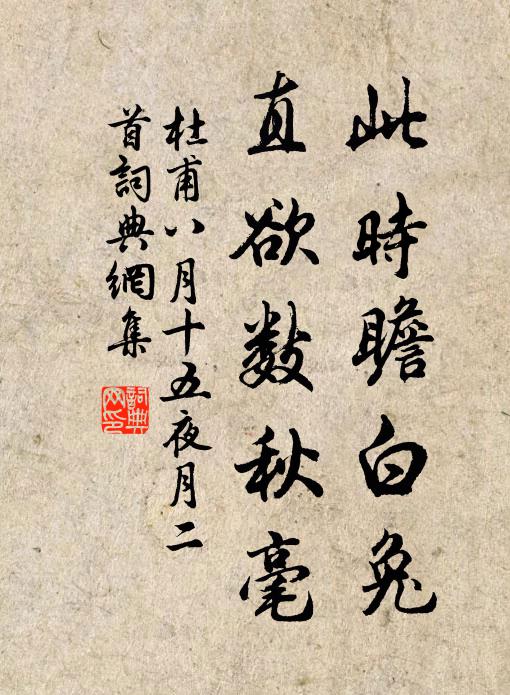 此時瞻白兔
直欲數秋毫
杜甫八月十五夜月二
首詞典網集
詞典
网印